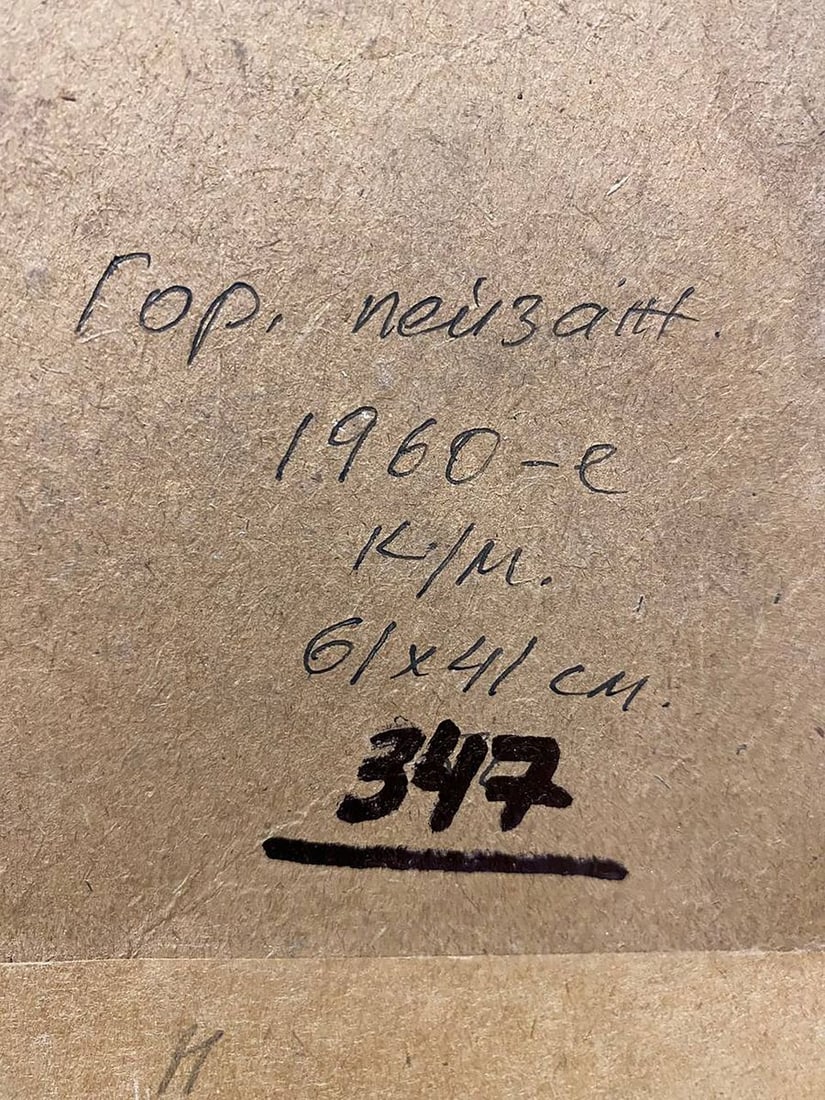 Гор. пейзаж.
1960-е
К/М.
61х41 см.
347